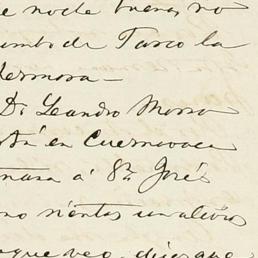 e noche buena, no
rumbo de Tasco la
hermosa—
Dn Leandro Mosso
está en Cuernavaca
masa á Sn José
no sientas un alivio
que veo, dices que